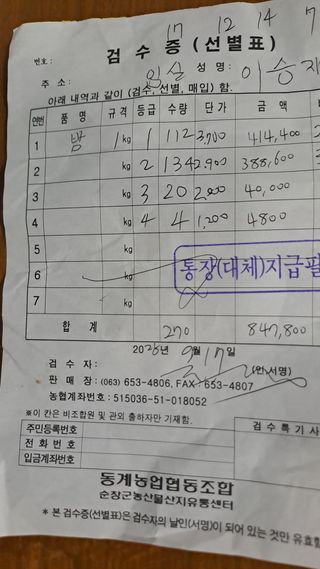 17 12 14 7
검 수 증 (선 별 표)
번호 :
주 소 : 임실 성 명 : 이승
아래 내역과 같이 (검수, 선별, 매입) 함.
연번 품 명 규 격 등급 수량 단 가 금 액
1 밤 1 kg 1 112 3,700 414,400
2 kg 2 134 2,900 388,600
3 kg 3 20 2,000 40,000
4 kg 4 4 1,200 4800
5 kg
통장(대체)지급필
6 kg
7 kg
합 계 270 847,800
2025년 9월 17일
검 수 자 : (인·서명)
판 매 장 : (063) 653-4806, FAX 653-4807
농협계좌번호 : 515036-51-018052
※이 칸은 비조합원 및 관외 출하자만 기재함.
주민등록번호 검 수 특 기 사
전 화 번 호
입금계좌번호
동계농업협동조합
순창군농산물산지유통센터
* 본 검수증(선별표)은 검수자의 날인(서명)이 되어 있는 것만 유효함